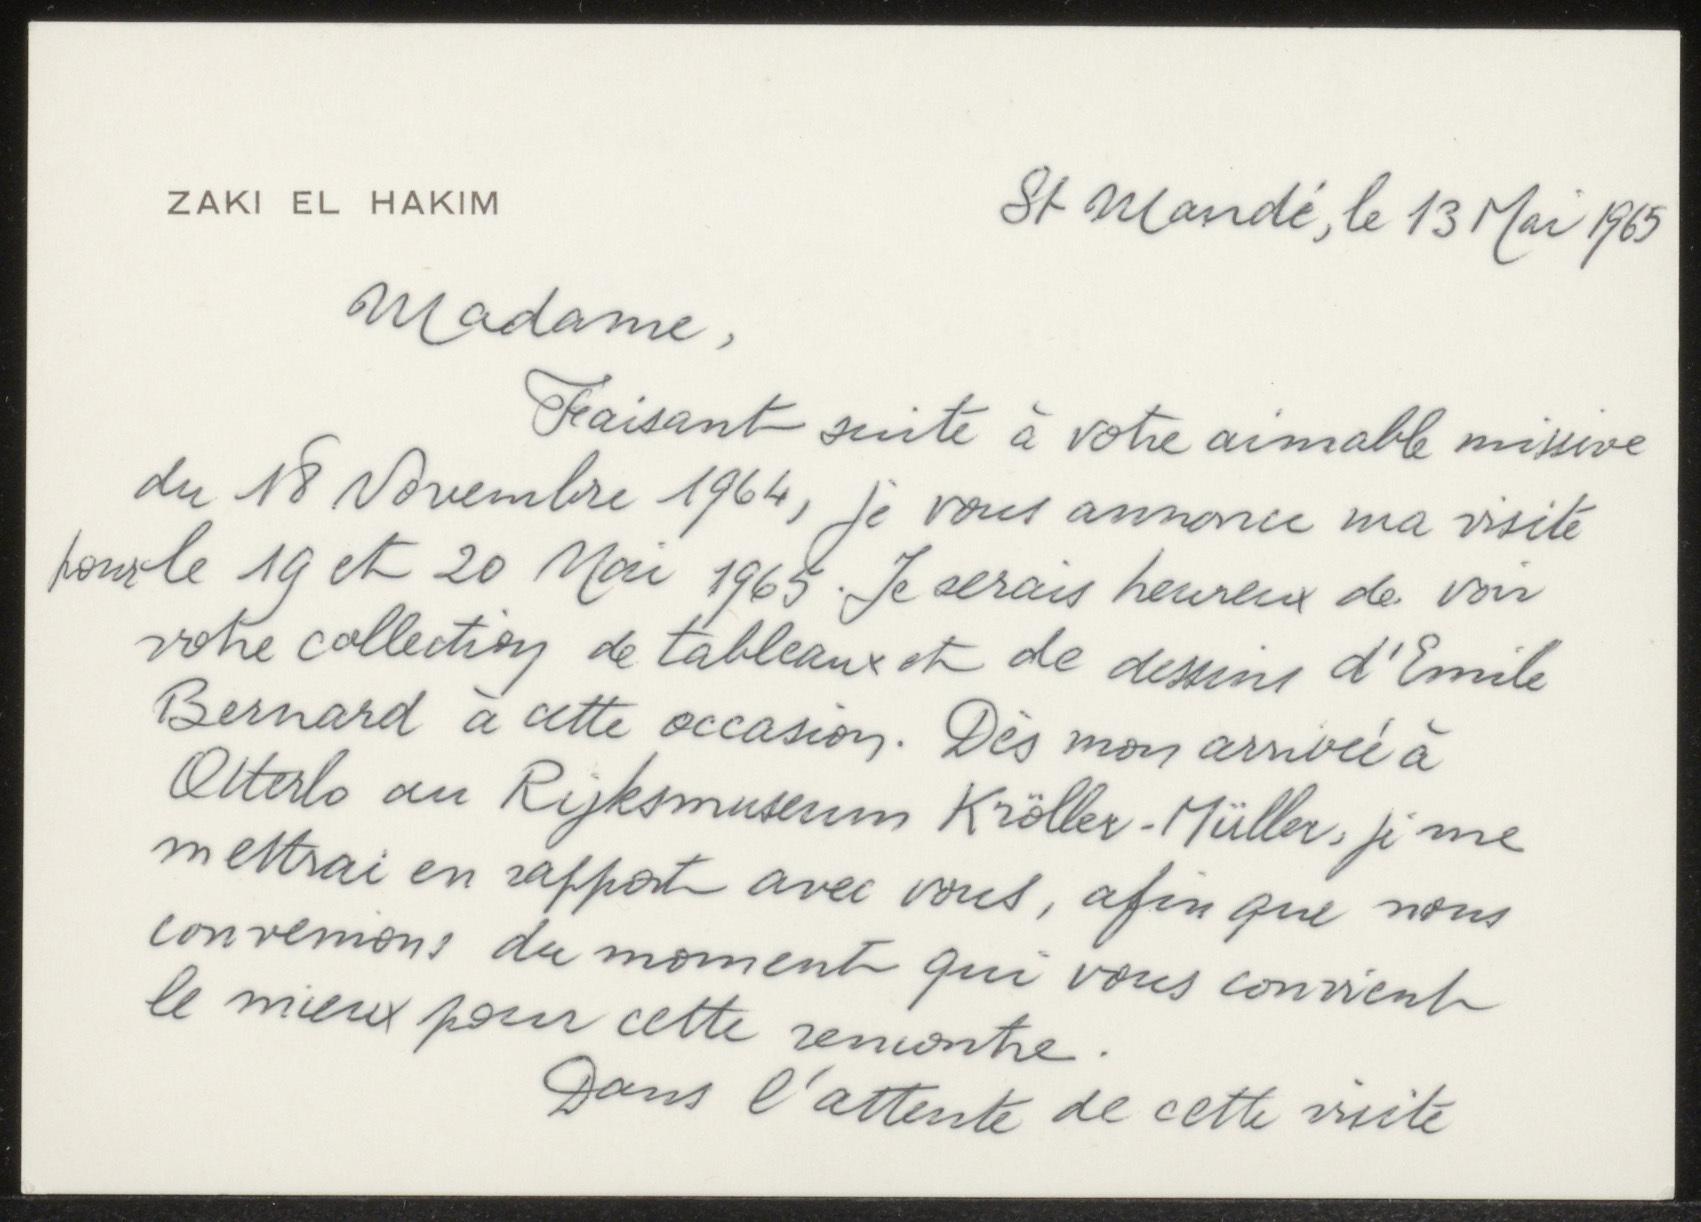 ZAKI EL HAKIM
St Mandé, le 13 Mai 1965
Madame,
Faisant suite à votre aimable missive
du 18 Novembre 1964, je vous annonce ma visite
pour le 19 et 20 Mai 1965. Je serais heureux de voir
votre collection de tableaux et de dessins d'Emile
Bernard à cette occasion. Dès mon arrivée à
Otterlo au Rijksmuseum Kröller-Müller, je me
mettrai en rapport avec vous, afin que nous
convenions du moment qui vous convient
le mieux pour cette rencontre.
Dans l'attente de cette visite